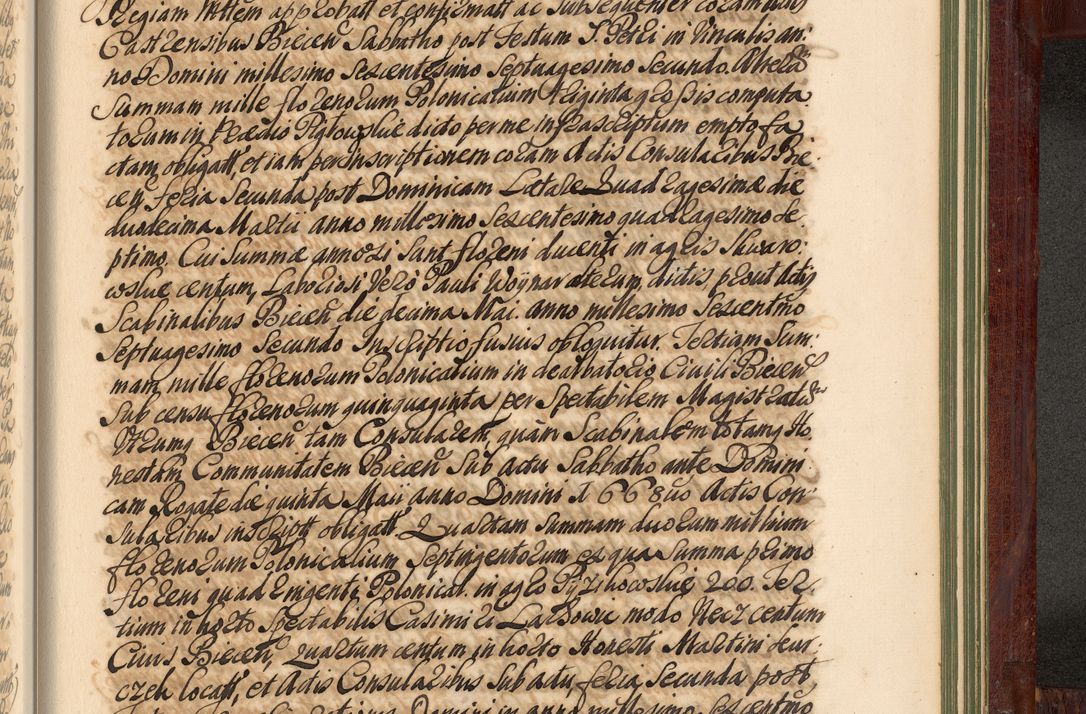 Regiam Mttem approbatt et confirmatt ac Subsequenter coram Actis
Castrensibus Biecen Sabbatho post Festum S. Petri in Vinculis an:
no Domini millesimo Sescentesimo Septuagesimo Secundo. Alteram
Summam mille florenorum Polonicalium triginta grossis computa
torum in Praedio dicto per me infrascriptum empto fa
ctam obligatt, et iam per inscriptionem coram Actis Consularibus Bie:
cen feria Secunda post Dominicam Laetare Quadragesimae die
duodecima Martii anno millesimo Sescentesimo quadragesimo Se
ptimo. Cui Summae annexi Sunt floreni ducenti in agris Skwaro:
coskie, centum, Labociosi Vero Pauli Woynarowterum, dictis, prout Actis
Scabinalibus Biecen die decima Mai. anno millesimo Sescentmo
Septuagesimo Secundo Inscriptio fusius obloquitur. Tertiam Sum:
mam mille florenorum Polonicalium in dealbatorio Civili Biecen
Sub censu florenorum quinquaginta per Spectabilem Magistratum
Utrumq Biecen tam Consularem, quam Scabinalem totamq Ho
nestam Communitatem Biecen Sub actu Sabbatho ante Domini
cam Rogate die quinta Maii anno Domini 1668 uo Actis Con:
sularibus inscript obligatt. Quartam Summam duorum millium
florenorum Polonicalium Septingentorum ex qua Summa primo
floreni quadringenti Polonical. in agro Przihocoskie 200. Ter
tium in horto Spectabilis Casimiri Lardowic modo Necz centum
Civis Biecen, Quartum centum in horto Honesti Martini
locatt, et Actis Consularibus Sub actu feria Secunda post
Domini in anno millesimo Sescentmo